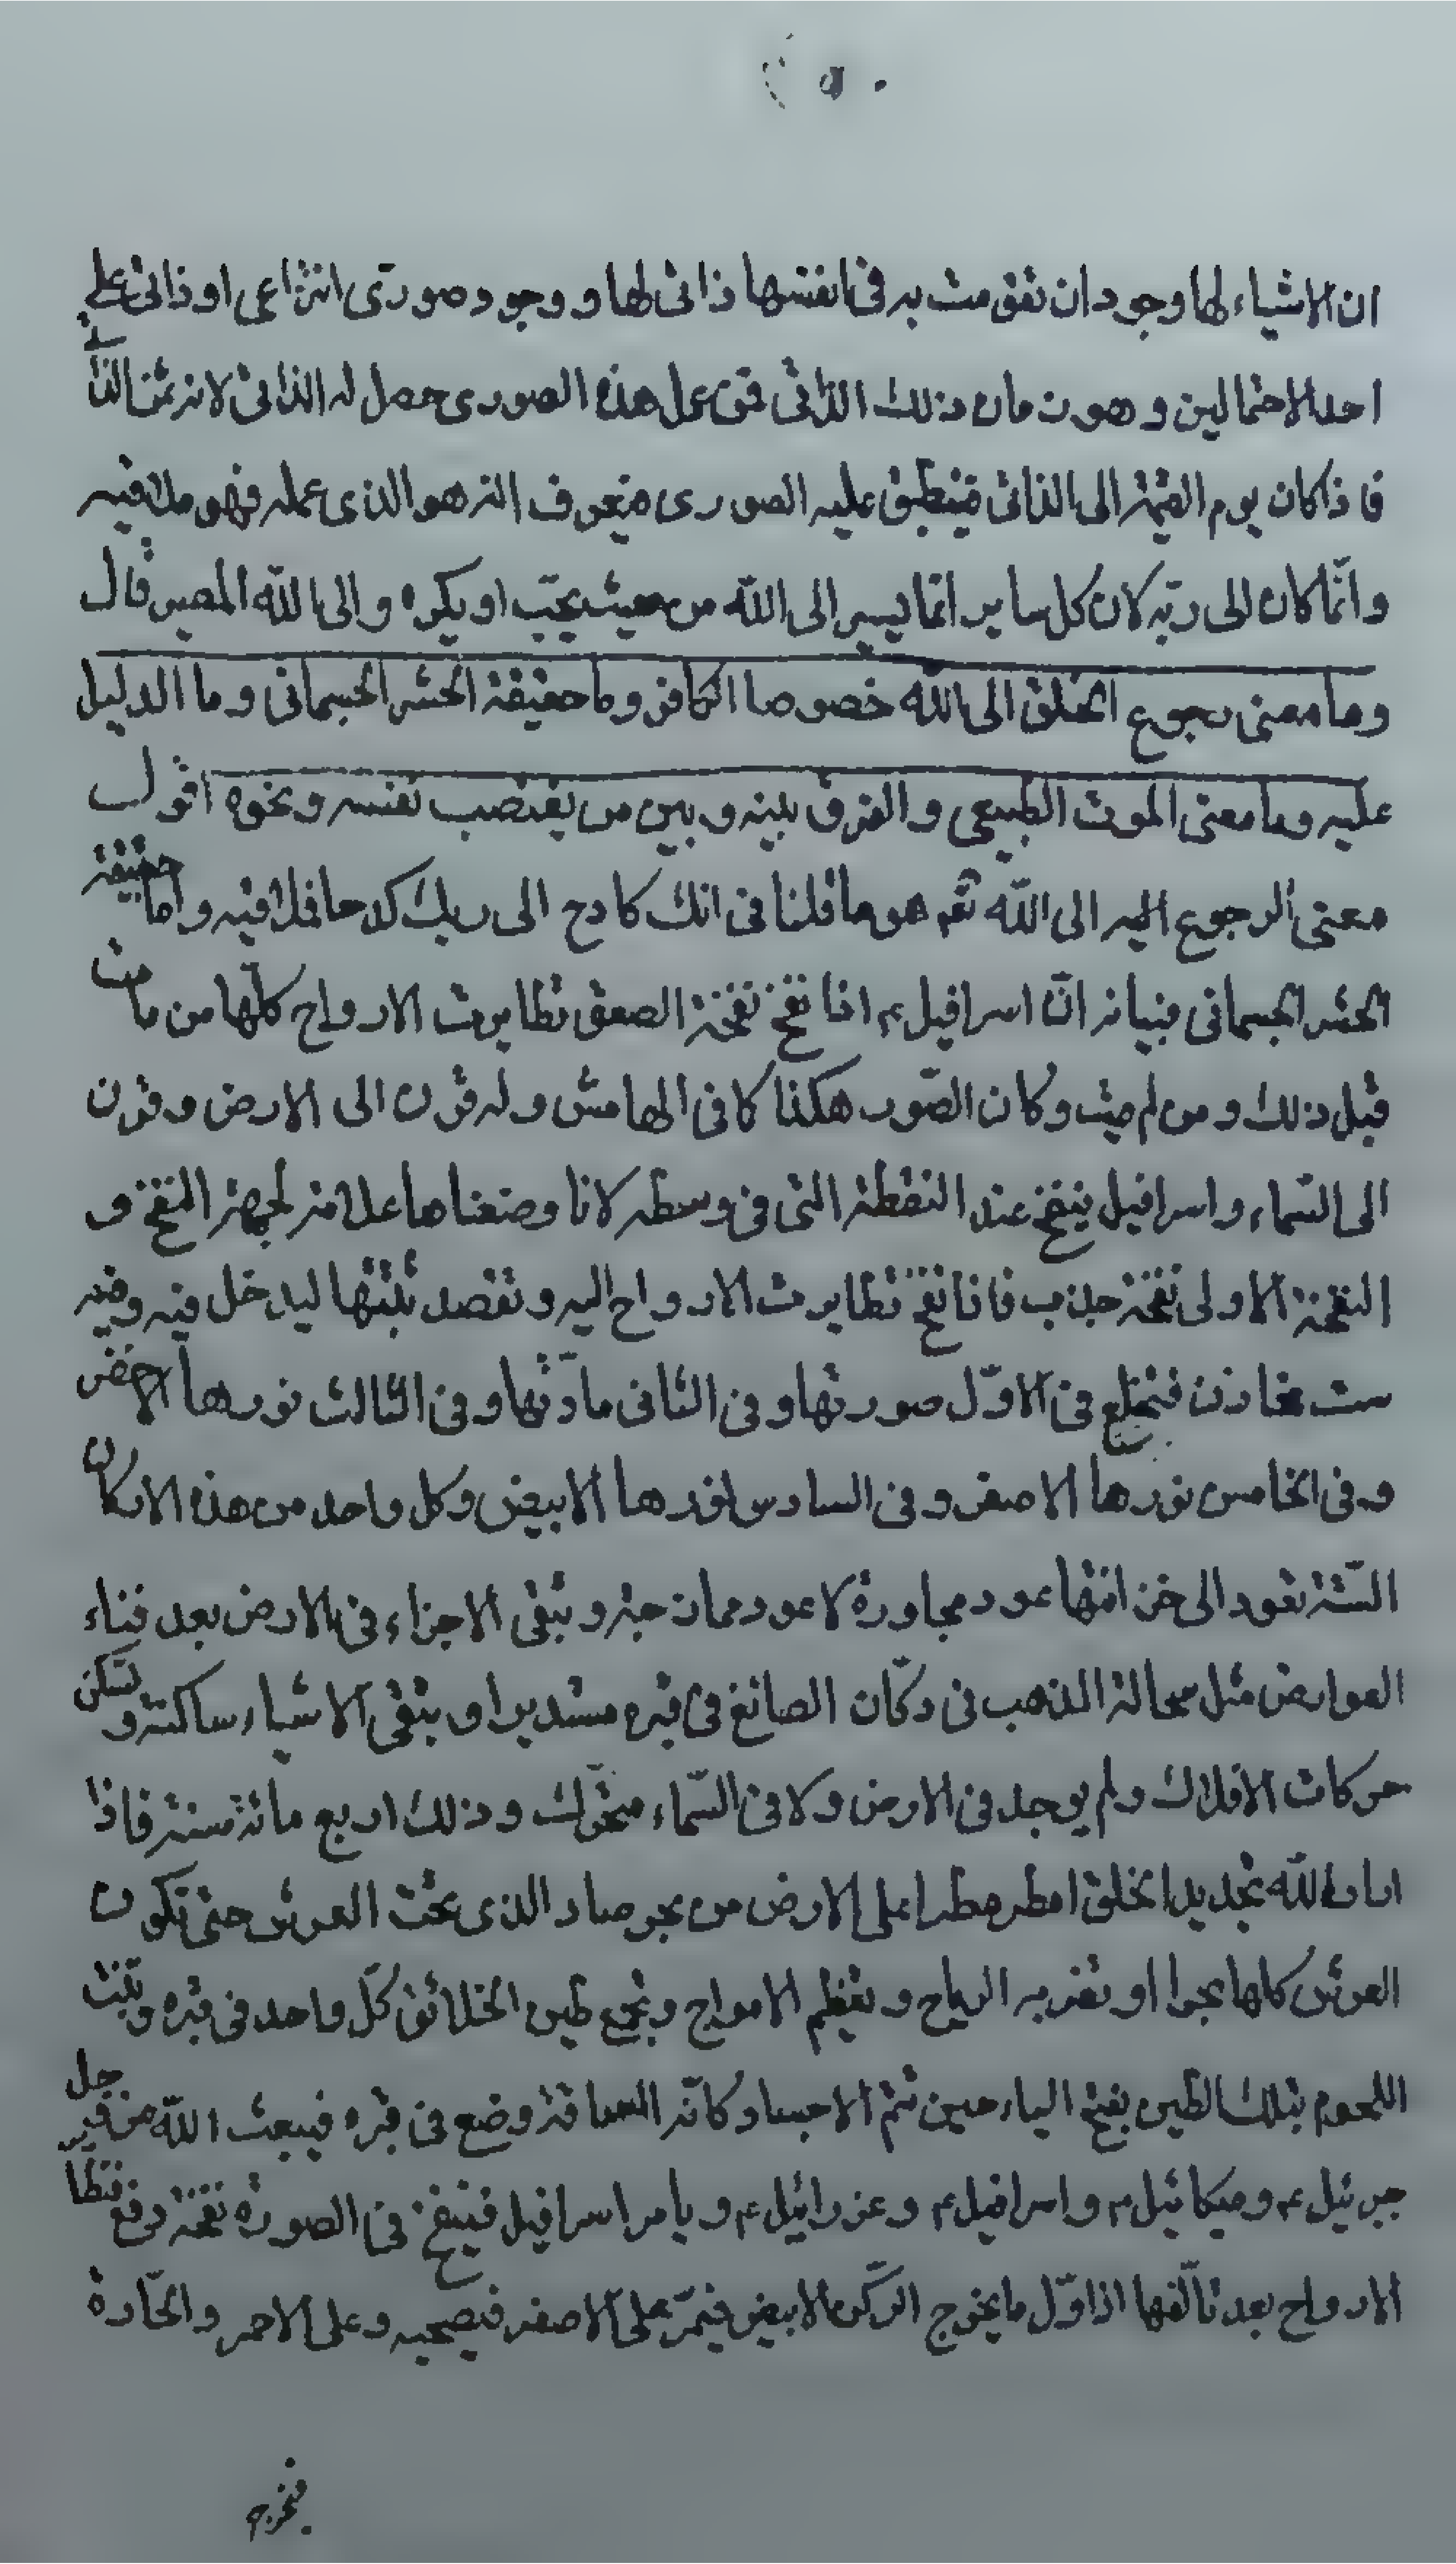 ان الاشياء لها وجودان تقومت به فى انفسها ذاتى لها و وجود صورى انتزاعى او ذاتى على
احد الاحتمالين و هو ن مان ذلك الذاتى فتى عمل هذه الصورى حصل له الذاتى لانه ثمن الذاتى
فاذا كان يوم القيمة الى الذاتى فينطبق عليه الصورى فيعرف انه هو الذى عمله فهو ملاقيه
و انّما كان الى ربّه لان كل ساير انّما يسير الى اللّه من حيث يحبّ او يكره و الى اللّه المصير قال
و ما معنى رجوع الخلق الى اللّه خصوصا الكافر و ما حقيقة الحشر الجسمانى و ما الدليل
عليه و ما معنى الموت الطبيعى و الفرق بينه و بين من يغتصب نفسه و نحوه اقول
معنى الرجوع اليه الى اللّه ثم هو ما قلنا فى انك كادح الى ربك كدحا فملاقيه و اما حقيقة
الحشر الجسمانى فبيانه انّ اسرافيل ع اذا نفخ نفخة الصعق تطايرت الارواح كلّها من مات
قبل ذلك و من لم يمت و كان الصّور هكذا كما فى الهامش و له قرن الى الارض و قرن
الى السّماء و اسرافيل ينفخ عند النقطة التى فى وسطه لانا وضعناها علامة لجهة النفخ و
النفخة الاولى نفخة جذب فاذا نفخ تطايرت الارواح اليه و تقصد ثقبتها ليدخل فيه و فيه
ست مخازن فتخلع فى الاوّل صورتها و فى الثانى مادّتها و فى الثالث نورها الاخضر
و فى الخامس نورها الاصفر و فى السادس نورها الابيض و كل واحد من هذه الاركان
السّتة تعود الى خزائنها عود مجاورة لا عود ممازجة و تبقى الاجزاء فى الارض بعد فناء
العوارض مثل سحالة الذهب فى دكّان الصائغ فى قبره مستديرا و يبقى الاشياء ساكتة و تسكن
حركات الافلاك و لم يوجد فى الارض و لا فى السّماء متحرّك و ذلك اربع مائة سنة فاذا
اراد اللّه تجديد الخلق امطر مطرا على الارض من بحر صاد الذى تحت العرش حتى تكون
العرش كلها بحرا او تضربه الرياح و تعظم الامواج و تجمع طين الخلائق كلّ واحد فى قبره و تنبت
اللحوم بتلك الطين بفتح الياء حين تتم الاجساد كانّه الساقة وضع فى قبره فيبعث اللّه عز و جل
جبرئيل ع و ميكائيل ع و اسرافيل ع و عزرائيل ع و يامر اسرافيل فينفخ فى الصورة نفخة دفع فتطا
الارواح بعد تالّفها اذا اوّل ما يخرج الركن الابيض فيمرّ على الاصفر فيصحبه و على الاحمر و الحّارة
فيخرج